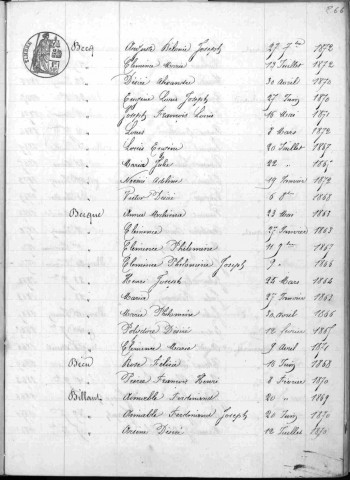 266
Becq Antoine Helénie Joseph 27 7bre 1872
" Clemence Marie 13 Juillet 1872
" Désiré Alexandre 30 Avril 1870
" Eugène Louis Joseph 27 Juin 1870
" Joseph François Louis 16 Mai 1871
" Louis 8 Mars 1872
" Louis 20 Juillet 1867
" Maria Julie 22 " 1867
" Noémie Adeline 19 Janvier 1872
" Victor Désiré 6 1868
Becque Anne 23 Mai 1861
" Clemence 27 Janvier 1863
" Clemence Philomène 11 9bre 1867
" Clemence Philomène Joseph 9 " 1866
" Henri Joseph 25 Mars 1864
" Maria 27 Janvier 1863
" Marie Philomène 30 Avril 1866
" Polydore Désiré 12 février 1867
" Clemence 9 Avril 1871
Rose Felicie 15 Juin 1868
" François Henri 8 Février 1870
Billaut Aimable Ferdinand 20 " 1869
" Aimable Ferdinand Joseph 20 Juin 1870
" Arsène Désiré 12 Juillet 1870